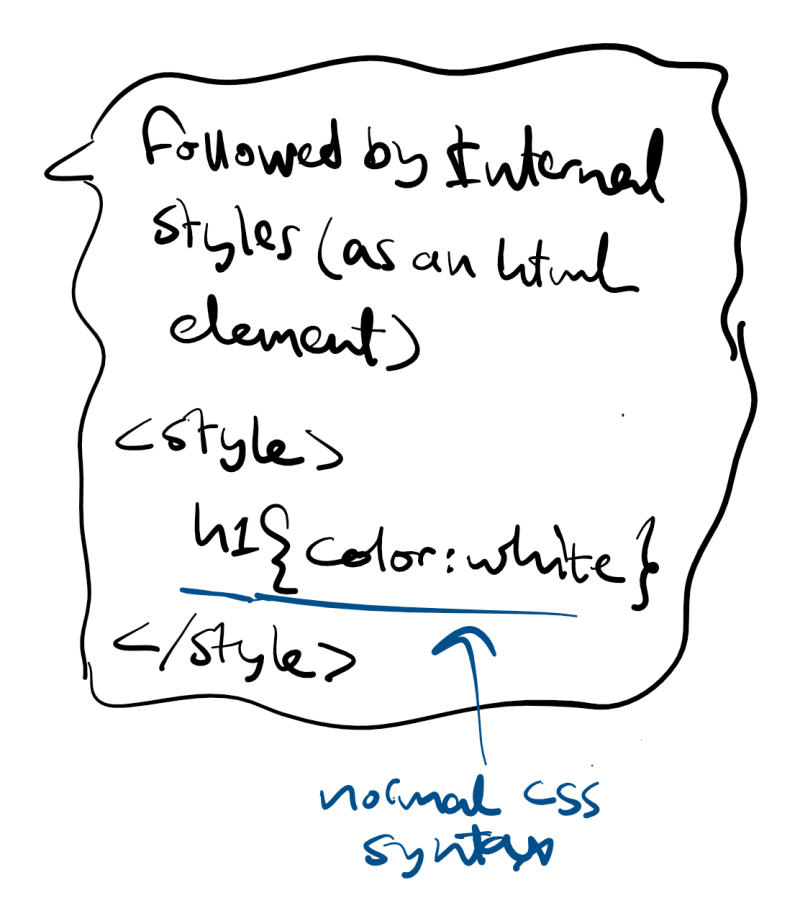 Followed by Internal
styles (as an html
element)
<style>
h1{color:white}
</style>
normal css
syntax